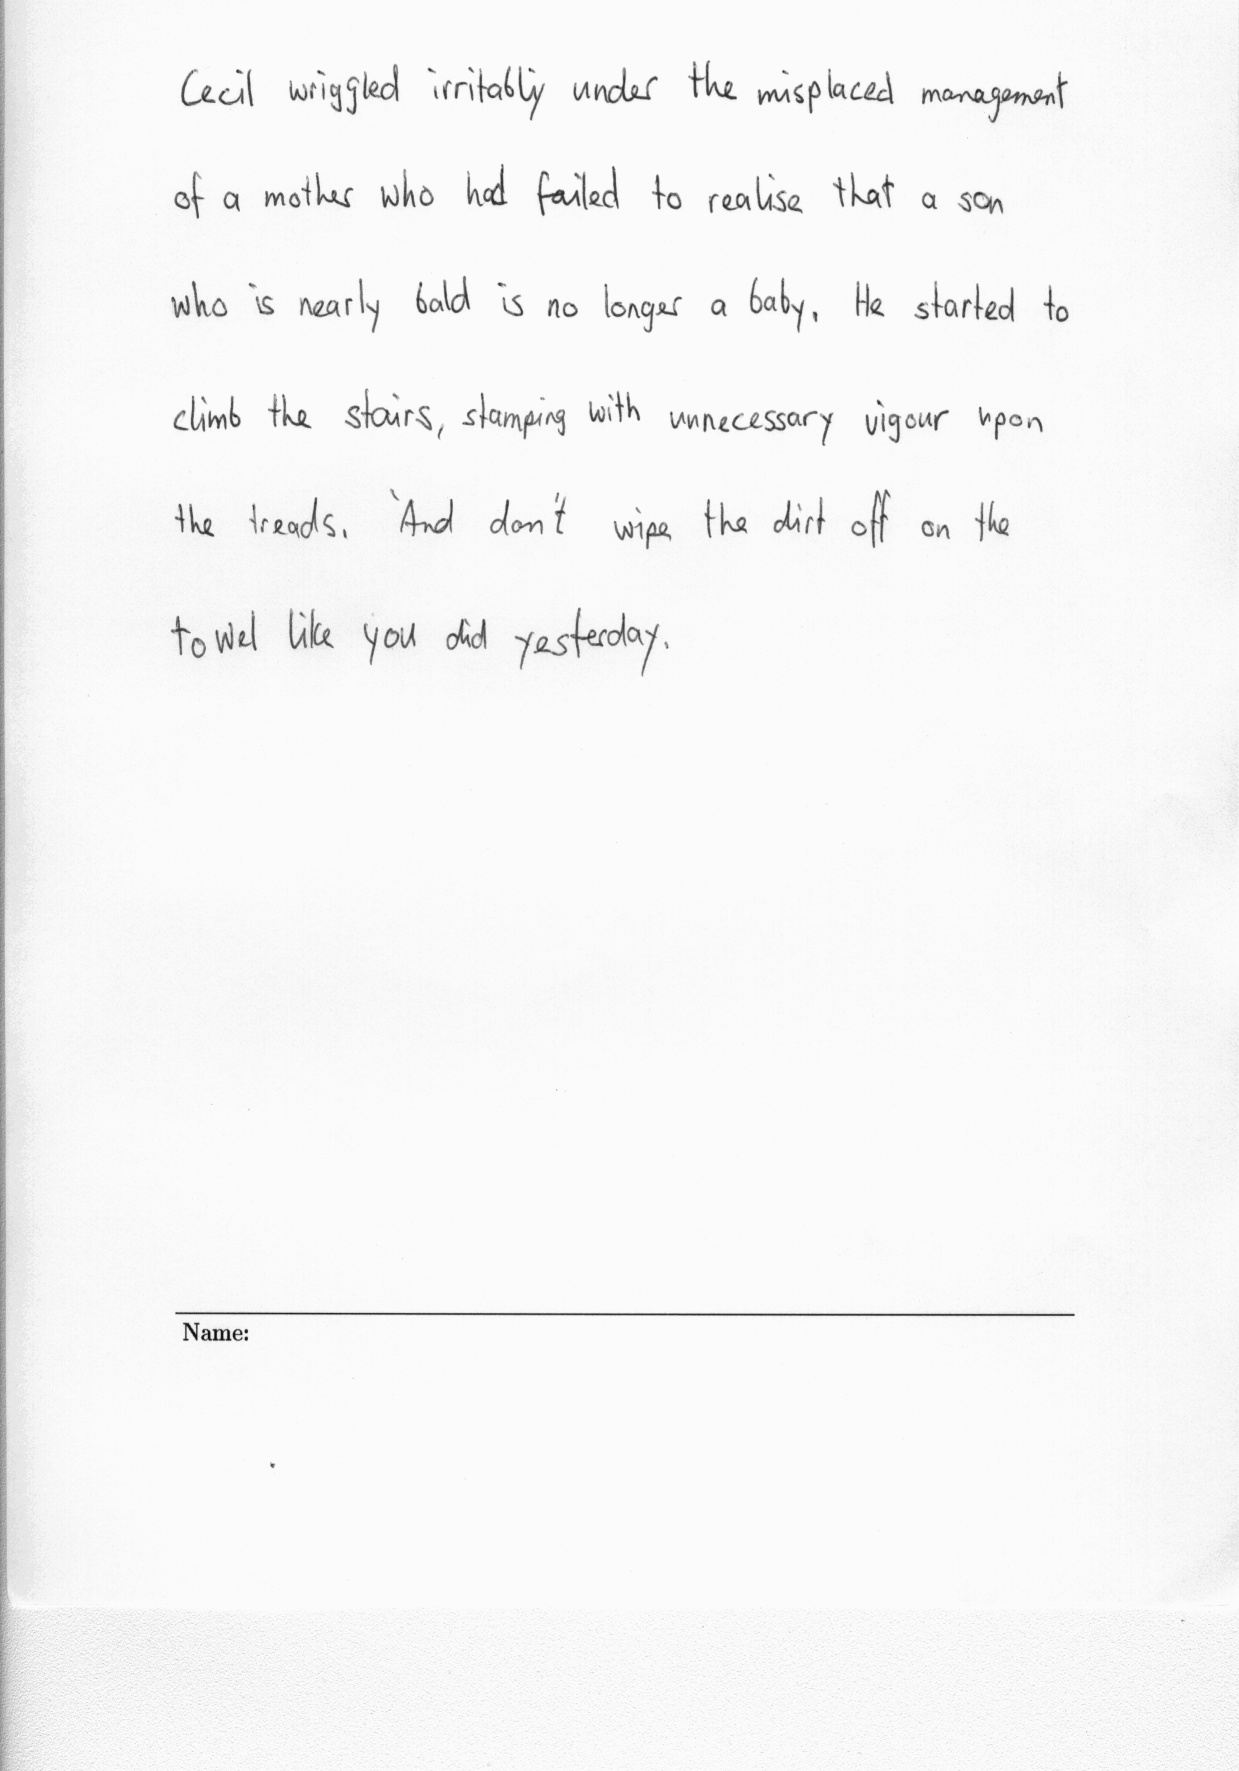 Cecil wriggled irritably under the misplaced management
of a mother who had failed to realise that a son
who is nearly bald is no longer a baby. He started to
climb the stairs, stamping with unnecessary vigour upon
the treads. 'And don't wipe the dirt off on the
towel like you did yesterday.
Name: